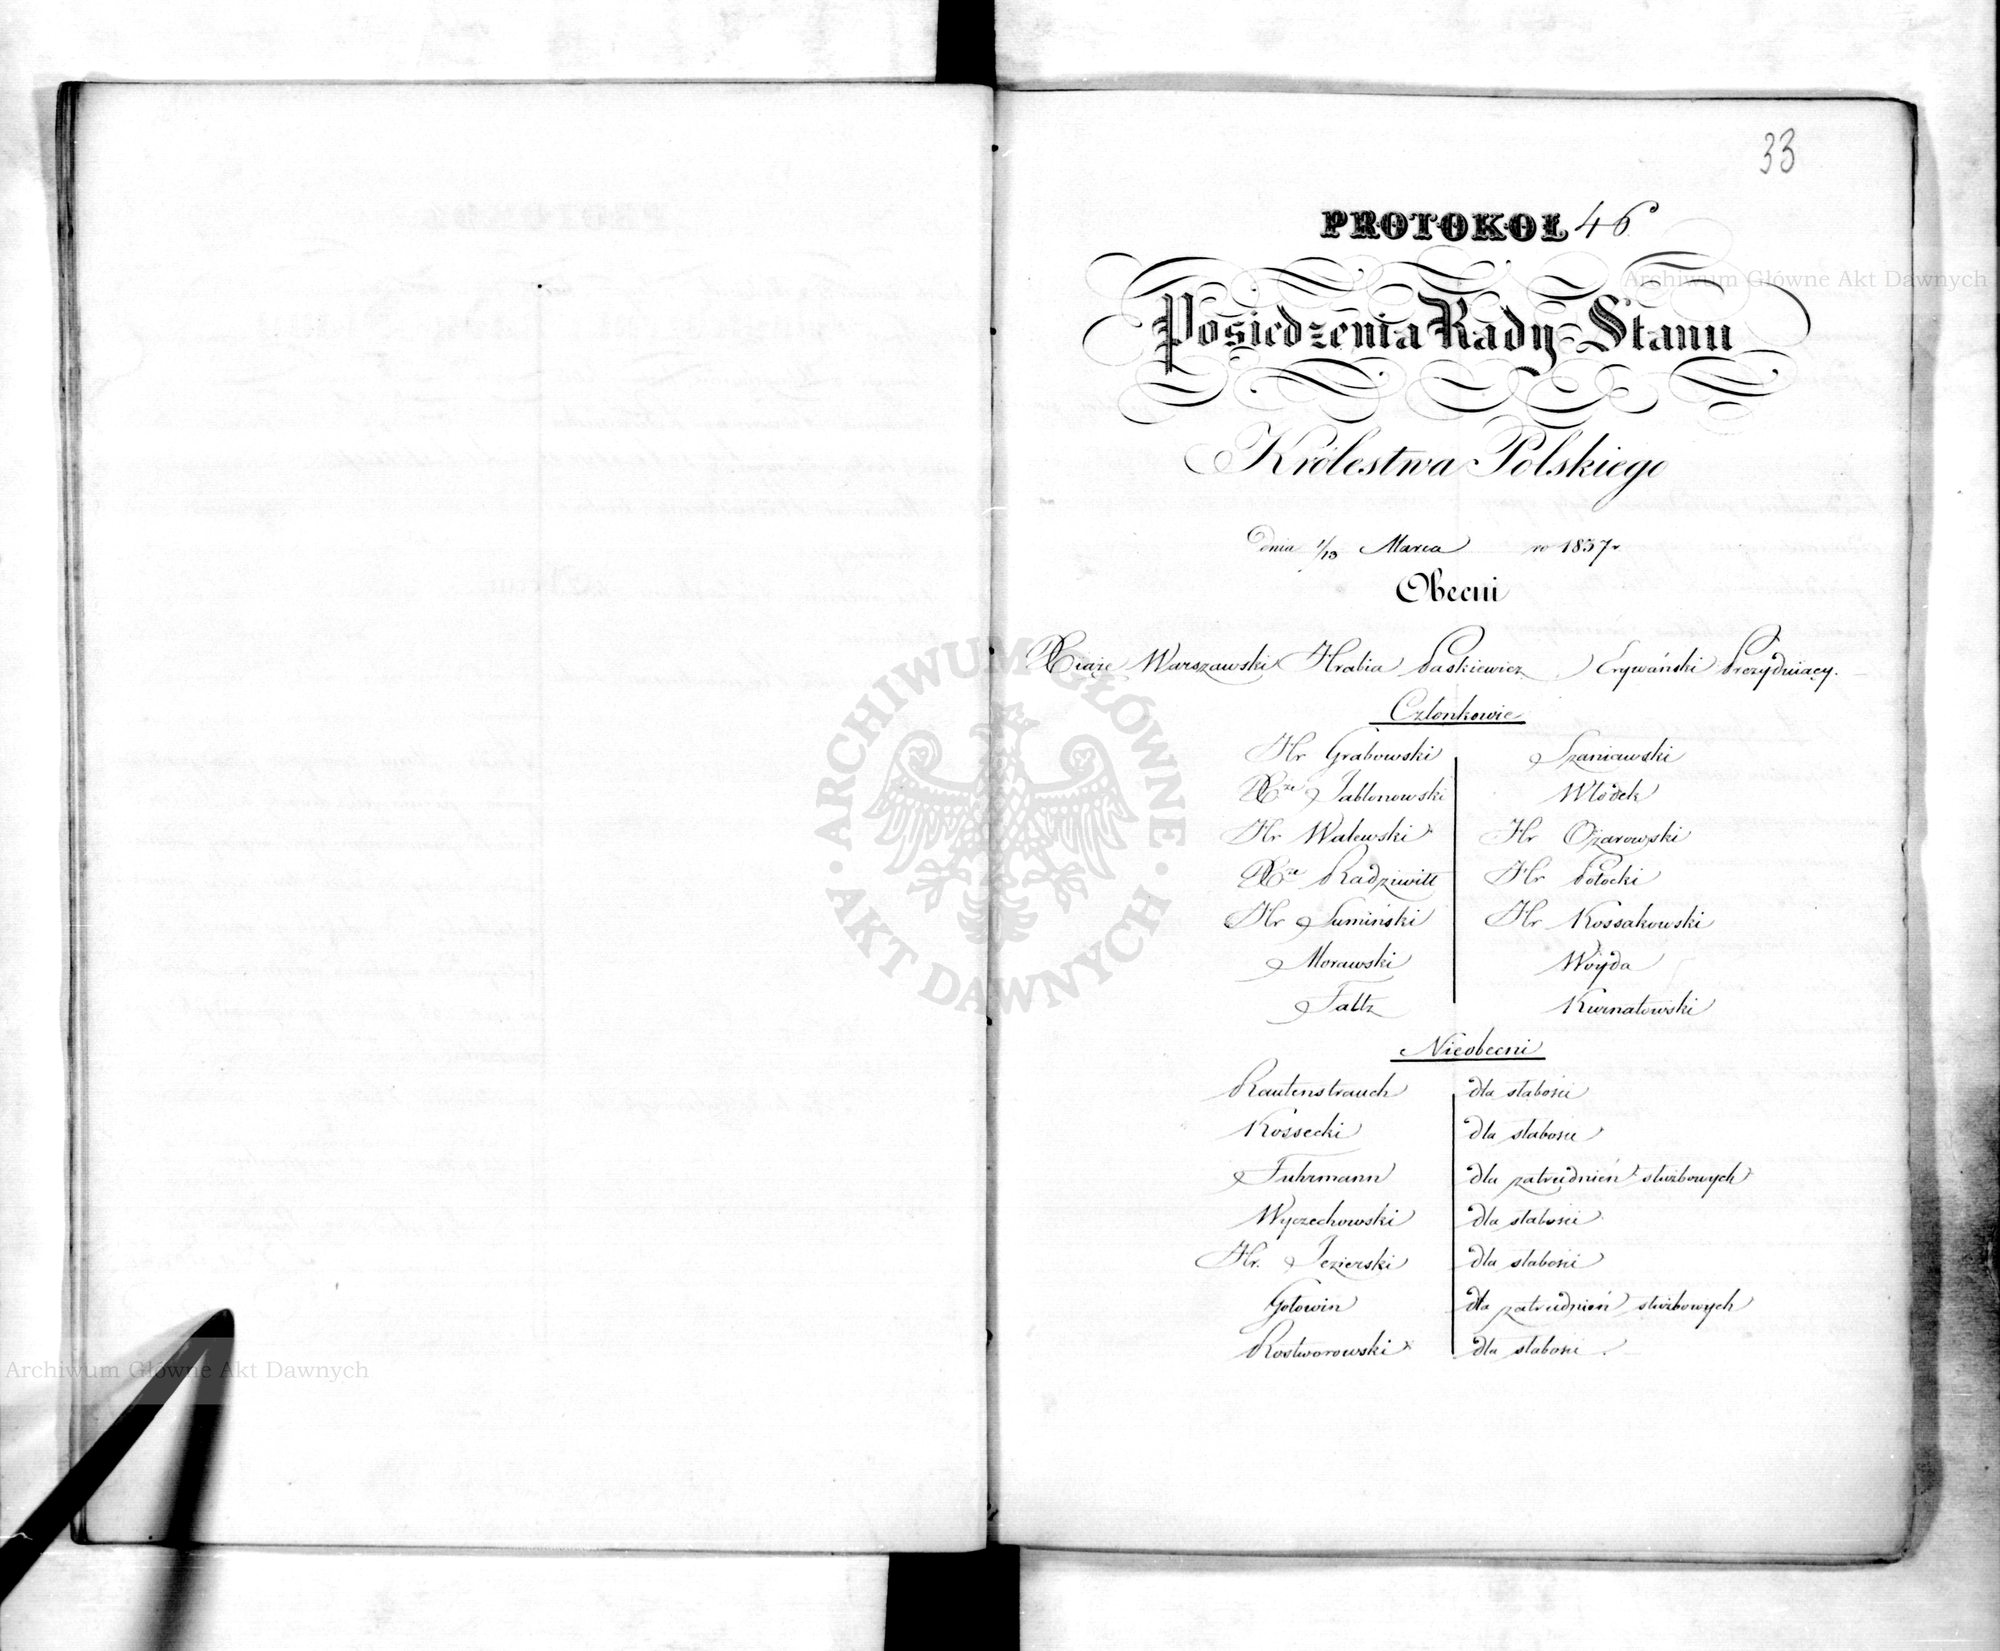 33
PROTOKOŁ 46
Posiedzenia Rady Stanu
Królestwa Polskiego
dnia 1/13 Marca ro 1837 r
Obecni
Xiąże Warszawski Hrabia Paskiewicz Erywański Prezydujący.
Członkowie
Hr Grabowski Szaniawski
Xże Jabłonowski Włodek
Hr Walewski Hr Ożarowski
Xże Radziwiłł Hr Potocki
Hr Sumiński Hr Kossakowski
Morawski Woyda
Faltz Kurnatowski
Nieobecni
Rautenstrauch dla słabości
Kossecki dla słabości
Fuhrmann dla zatrudnień służbowych
Wyczechowski dla słabości
Hr. Jezierski dla słabości
Gołowin dla zatrudnień służbowych
Rostworowski dla słabości
ARCHIWUM GŁÓWNE
AKT DAWNYCH
Archiwum Główne Akt Dawnych
Archiwum Główne Akt Dawnych